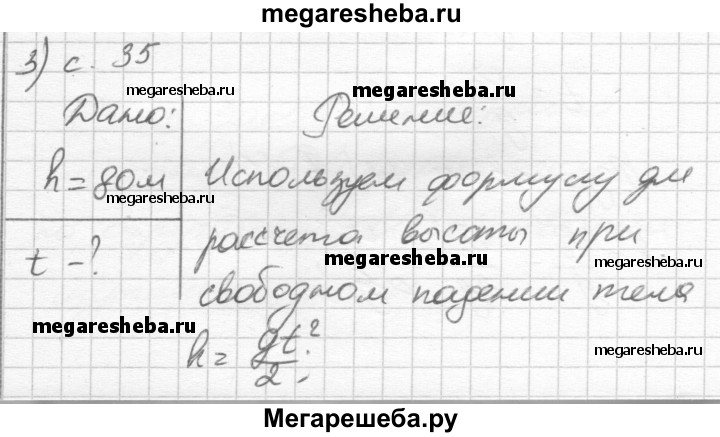 megaresheba.ru
3) с. 35
megaresheba.ru
megaresheba.ru
Дано: Решение:
h = 80м Используем формулу для
megaresheba.ru
t - ? рассчета высоты при
megaresheba.ru
megaresheba.ru
свободном падении тела
megaresheba.ru
h = gt²/2.
megaresheba.ru
Мегарешеба.ру